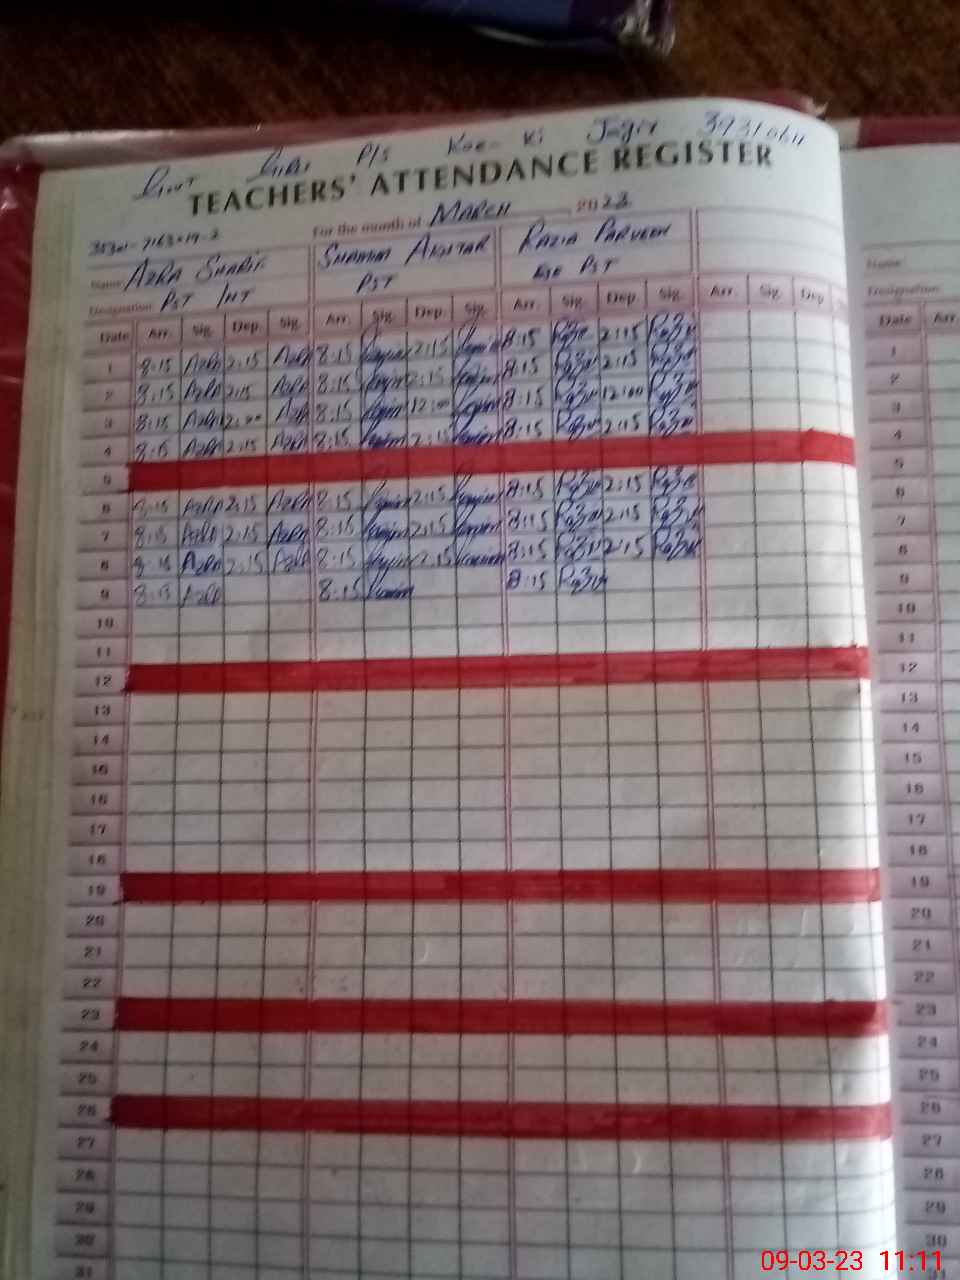 Govt Girls P/S Koe- Ki Jagir
TEACHERS' ATTENDANCE REGISTER
For the month of MARCH 2023
Name AZRA SHARIF SHAMIM AKHTAR RAZIA PARVEEN
Designation PST INT PST PST
Date Arr. Sig. Dep. Sig. Arr. Sig. Dep. Sig. Arr. Sig. Dep. Sig. Arr. Sig. Dep
1 8:15 Azra 2:15 Azra 8:15 2:15 8:15 Razia 2:15 Razia
2 8:15 Azra 2:15 Azra 8:15 2:15 8:15 Razia 2:15 Razia
3 8:15 Azra 12:00 Azra 8:15 12:00 8:15 Razia 12:00 Razia
4 8:15 Azra 2:15 Azra 8:15 2:15 8:15 Razia 2:15 Razia
5
6 8:15 Azra 2:15 Azra 8:15 2:15 8:15 Razia 2:15 Razia
7 8:15 Azra 2:15 Azra 8:15 2:15 8:15 Razia 2:15 Razia
8 8:15 Azra 2:15 Azra 8:15 2:15 8:15 Razia 2:15 Razia
9 8:15 Azra 8:15 8:15 Razia
10
11
12
13
14
15
16
17
18
19
20
21
22
23
24
25
26
27
28
29
30
31
Name
Designation
Date Arr.
1
2
3
4
5
6
7
8
9
10
11
12
13
14
15
16
17
18
19
20
21
22
23
24
25
26
27
28
29
30
09-03-23 11:11